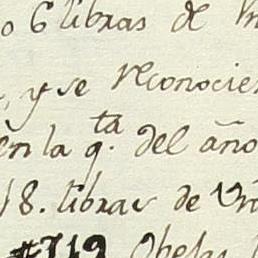 o 6 libras de
, y se reconocie
en la q.ta del año
18. libras de
#712 Obejas